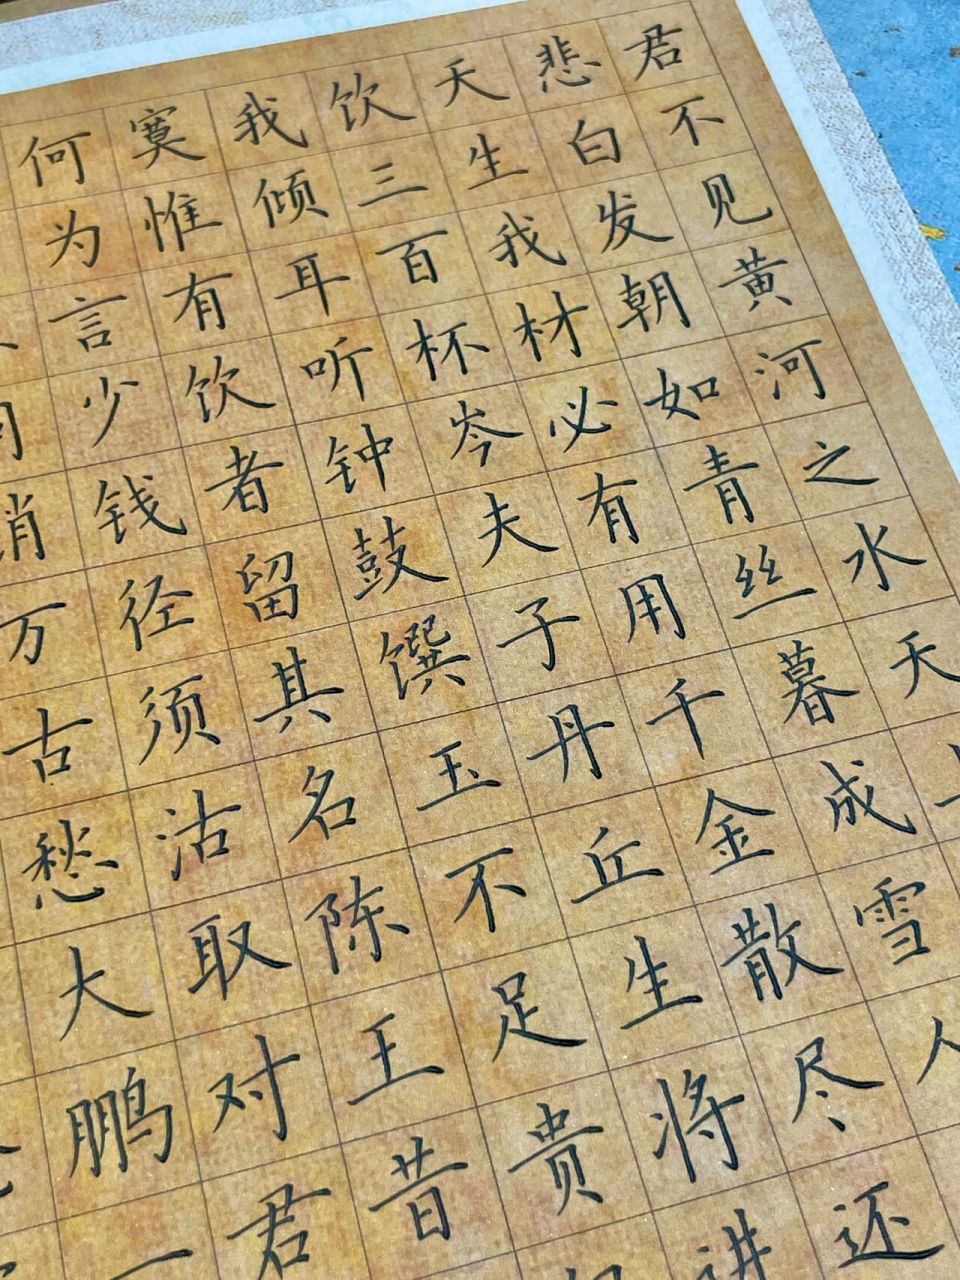 君不见黄河之水天
悲白发朝如青丝暮成雪人
天生我材必有用千金散尽还
饮三百杯岑夫子丹丘生将进
我倾耳听钟鼓馔玉不足贵
寞惟有饮者留其名陈王昔
何为言少钱径须沽取对君
万古愁大鹏一